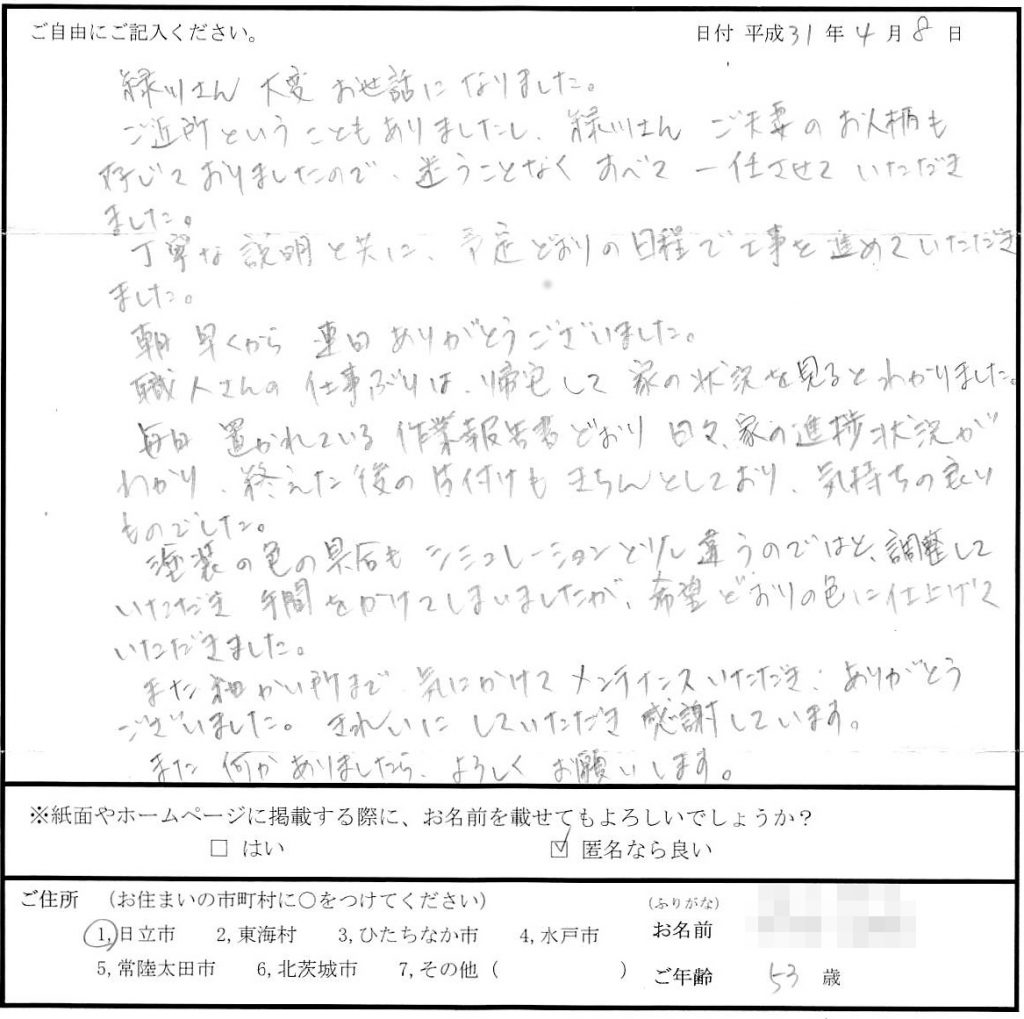 ご自由にご記入ください。
日付 平成31年4月8日
緑川さん 大変 お世話になりました。
ご近所ということもありましたし、緑川さん ご夫妻のお人柄も
存じておりましたので、迷うことなく すべて 一任させて いただき
ました。
丁寧な説明と共に、予定どおりの日程で工事を進めていただき
ました。
朝早くから 連日ありがとうございました。
職人さんの仕事ぶりは、帰宅して 家の状況を見るとわかりました。
毎日 置かれている 作業報告書どおり 日々、家の進捗状況が
わかり、終えた後の片付けも きちんとしており、気持ちの良い
ものでした。
塗装の色の具合も シミュレーションと少し違うのではと、調整して
いただき 手間をかけてしまいましたが、希望どおりの色に仕上げて
いただきました。
また 細かい所まで 気にかけて メンテナンスいただき、ありがとう
ございました。きれいに していただき 感謝しています。
また 何かありましたら、よろしく お願いします。
※紙面やホームページに掲載する際に、お名前を載せてもよろしいでしょうか？
□ はい ☑ 匿名なら良い
ご住所 （お住まいの市町村に○をつけてください）
1,日立市 2,東海村 3,ひたちなか市 4,水戸市
5,常陸太田市 6,北茨城市 7,その他（ ）
（ふりがな）
お名前
ご年齢 53 歳